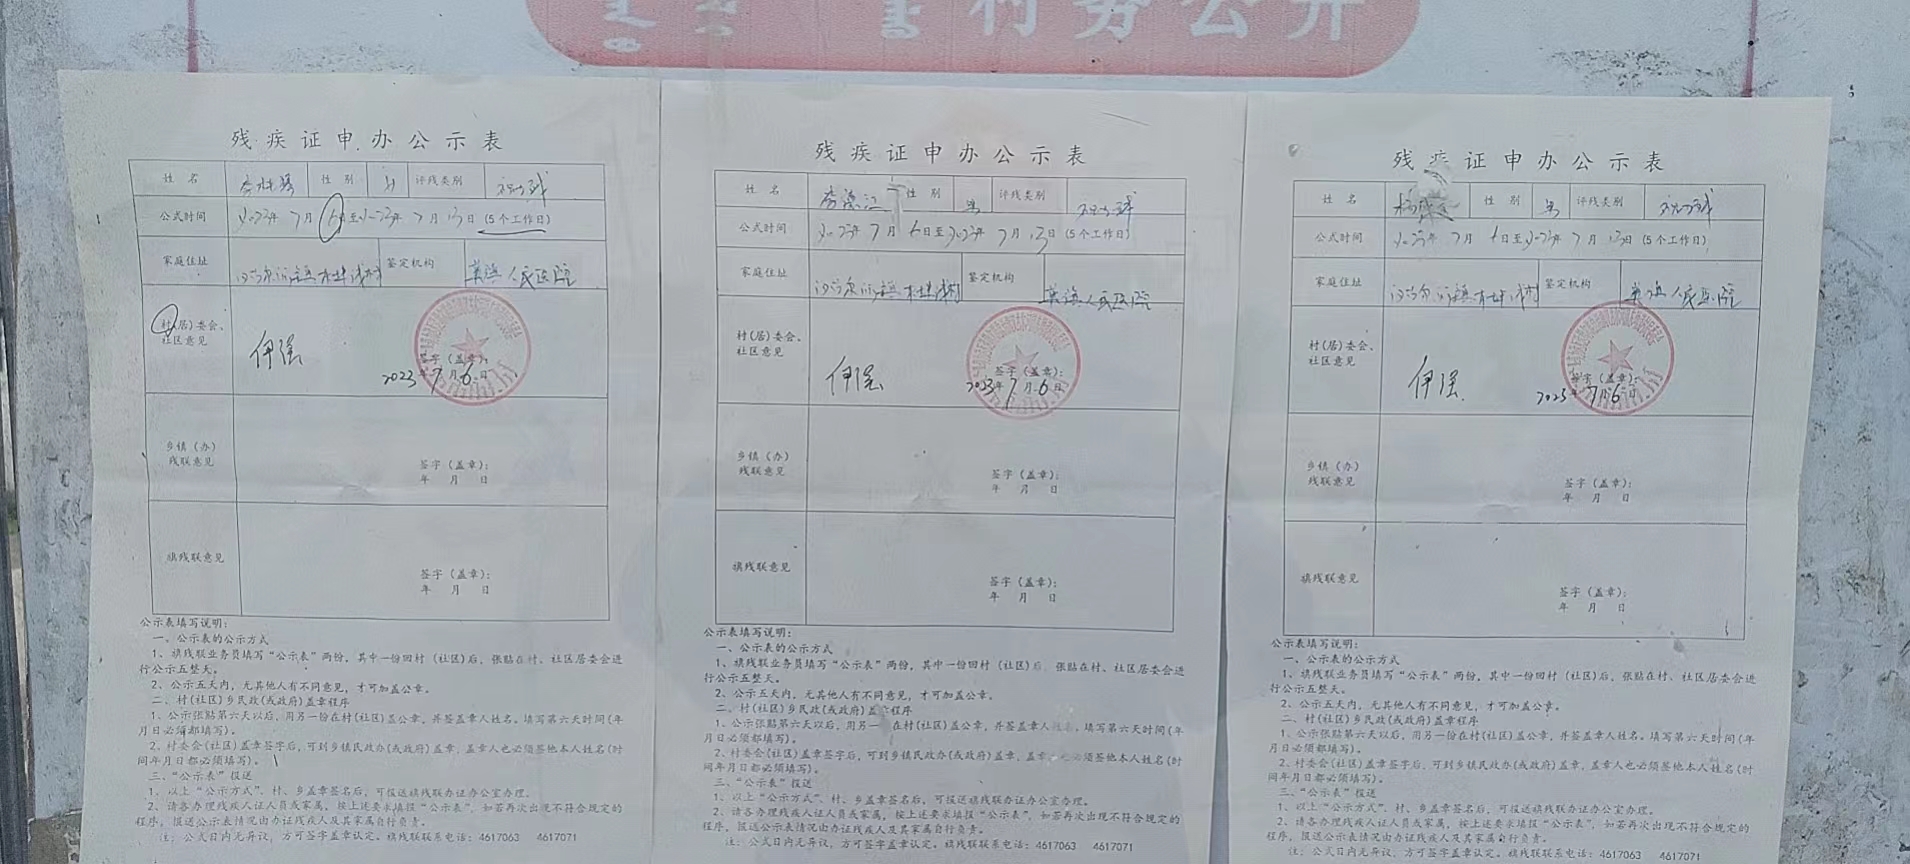 村务公开
残疾证申办公示表
姓名 性别 评残类别
公式时间 2023年7月6日至2023年7月13日(5个工作日)
家庭住址 鉴定机构 莫旗人民医院
村(居)委会、
社区意见
伊强
签字(盖章):
2023年7月6日
乡镇(办)
残联意见
签字(盖章):
年 月 日
旗残联意见
签字(盖章):
年 月 日
公示表填写说明:
一、公示表的公示方式
1、旗残联业务员填写“公示表”两份,其中一份回村(社区)后,张贴在村、社区居委会进
行公示五整天。
2、公示五天内,无其他人有不同意见,才可加盖公章。
二、村(社区)乡民政(或政府)盖章程序
1、公示张贴第六天以后,用另一份在村(社区)盖公章,并签盖章人姓名。填写第六天时间(年
月日必须都填写)。
2、村委会(社区)盖章签字后,可到乡镇民政办(或政府)盖章,盖章人也必须签他本人姓名(时
间年月日都必须填写)。
三、“公示表”报送
1、以上“公示方式”、村、乡盖章签名后,可报送旗残联办证办公室办理。
2、请各办理残疾人证人员或家属,按上述要求填报“公示表”,如若再次出现不符合规定的
程序,报送公示表情况由办证残疾人及其家属自行负责。
注:公式日内无异议,方可签字盖章认定。旗残联联系电话:4617063 4617071
残疾证申办公示表
姓名 性别 男 评残类别
公式时间 2023年7月6日至2023年7月13日(5个工作日)
家庭住址 鉴定机构 莫旗人民医院
村(居)委会、
社区意见
伊强
签字(盖章):
2023年7月6日
乡镇(办)
残联意见
签字(盖章):
年 月 日
旗残联意见
签字(盖章):
年 月 日
公示表填写说明:
一、公示表的公示方式
1、旗残联业务员填写“公示表”两份,其中一份回村(社区)后,张贴在村、社区居委会进
行公示五整天。
2、公示五天内,无其他人有不同意见,才可加盖公章。
二、村(社区)乡民政(或政府)盖章程序
1、公示张贴第六天以后,用另一 在村(社区)盖公章,并签盖章人 填写第六天时间(年
月日必须都填写)。
2、村委会(社区)盖章签字后,可到乡镇民政办(或政府)盖章,盖章 必须签他本人姓名(时
间年月日都必须填写)。
三、“公示表”报送
1、以上“公示方式”、村、乡盖章签名后,可报送旗残联办证办公室办理。
2、请各办理残疾人证人员或家属,按上述要求填报“公示表”,如若再次出现不符合规定的
程序,报送公示表情况由办证残疾人及其家属自行负责。
注:公式日内无异议,方可签字盖章认定。旗残联联系电话:4617063 4617071
残疾证申办公示表
姓名 性别 男 评残类别
公式时间 2023年7月6日至2023年7月13日(5个工作日)
家庭住址 鉴定机构 莫旗人民医院
村(居)委会、
社区意见
伊强
签字(盖章):
2023年7月6日
乡镇(办)
残联意见
签字(盖章):
年 月 日
旗残联意见
签字(盖章):
年 月 日
公示表填写说明:
一、公示表的公示方式
1、旗残联业务员填写“公示表”两份,其中一份回村(社区)后,张贴在村、社区居委会进
行公示五整天。
2、公示五天内,无其他人有不同意见,才可加盖公章。
二、村(社区)乡民政(或政府)盖章程序
1、公示张贴第六天以后,用另一份在村(社区)盖公章,并签盖章人姓名。填写第六天时间(年
月日必须都填写)。
2、村委会(社区)盖章签字后,可到乡镇民政办(或政府)盖章,盖章人也必须签他本人姓名(时
间年月日都必须填写)。
三、“公示表”报送
1、以上“公示方式”、村、乡盖章签名后,可报送旗残联办证办公室办理。
2、请各办理残疾人证人员或家属,按上述要求填报“公示表”,如若再次出现不符合规定的
程序,报送公示表情况由办证残疾人及其家属自行负责。
注:公式日内无异议,方可签字盖章认定。旗残联联系电话:4617063 4617071